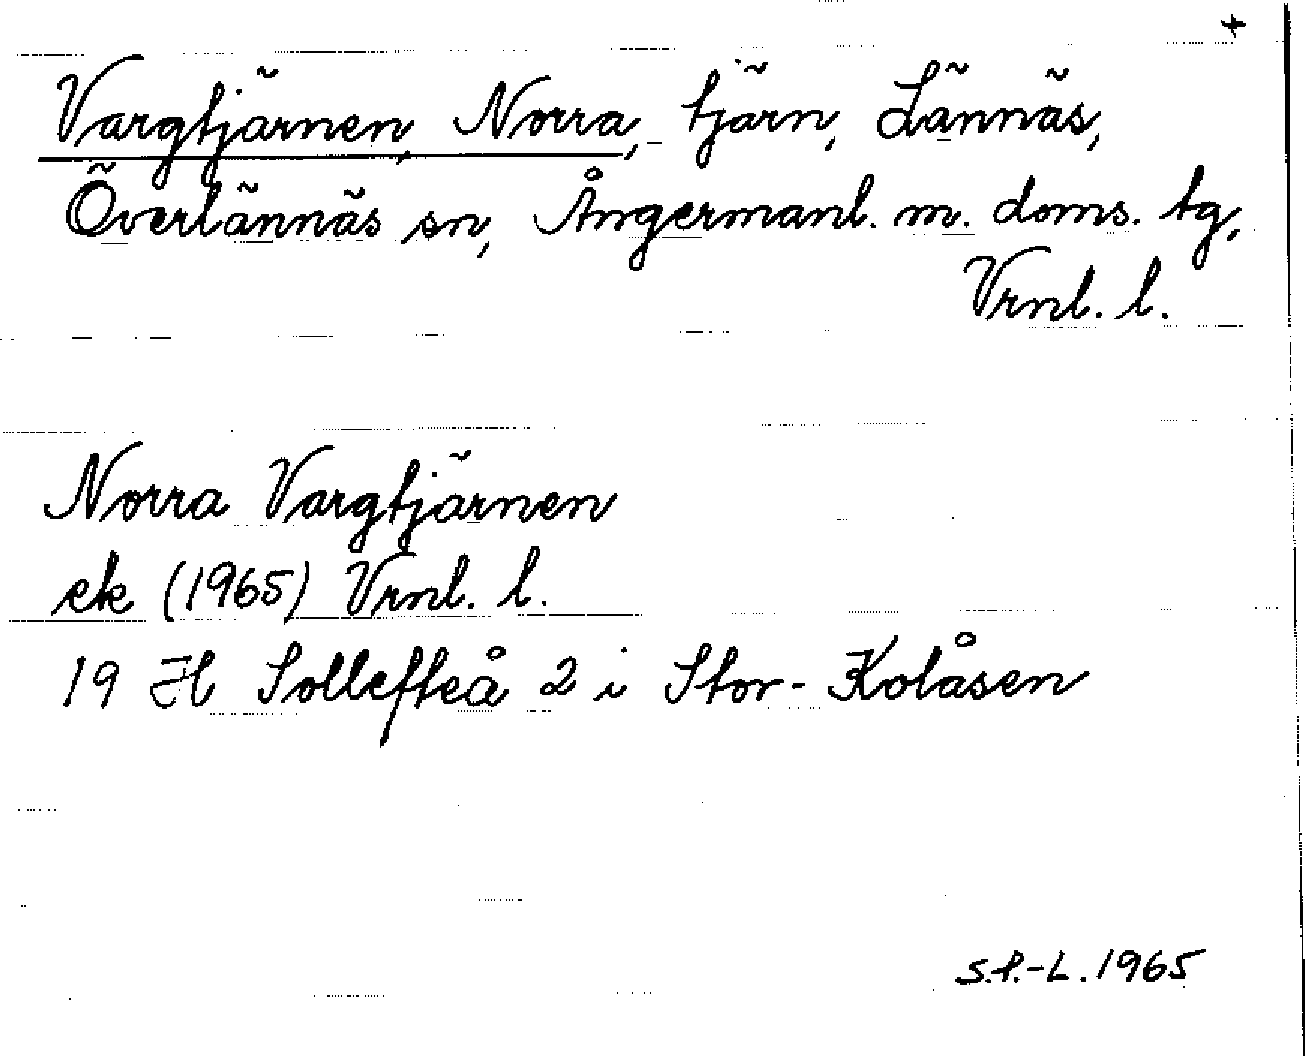 +
Vargtjärnen, Norra, tjärn, Lännäs,
Överlännäs sn, Ångermanl. m. doms. tg,
Vrnl. l.
Norra Vargtjärnen
ek (1965) Vrnl. l.
19 H Sollefteå 2 i Stor-Kolåsen
S.P.-L. 1965